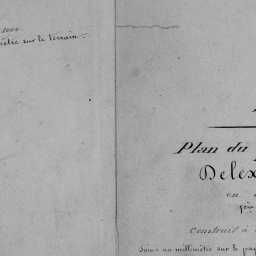 mètre sur le terrain.
Plan du
Delex
en
Construit à
Sous un millimètre sur le pap